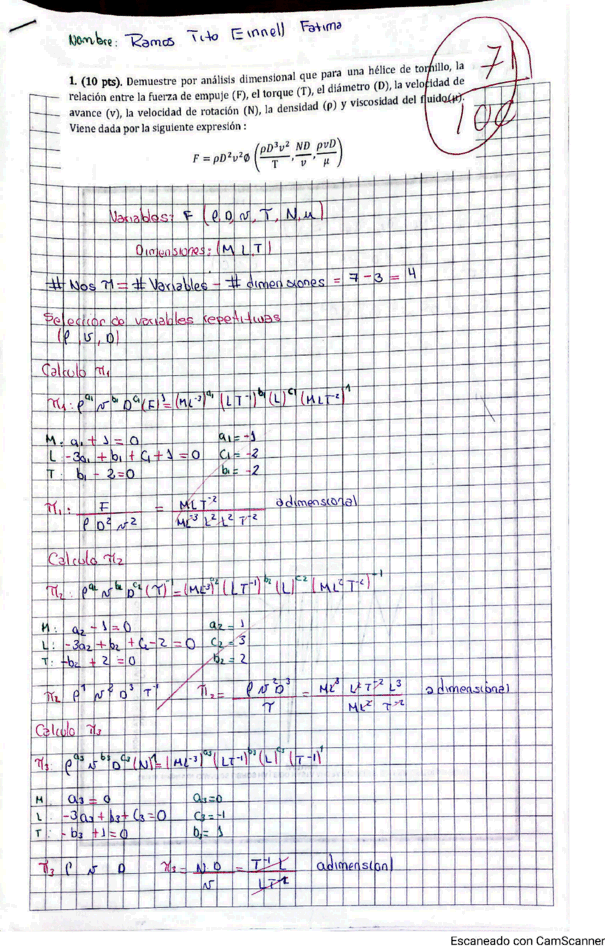 Nombre: Ramos Tito Einnell Fatima
71/100
1. (10 pts). Demuestre por análisis dimensional que para una hélice de tornillo, la
relación entre la fuerza de empuje (F), el torque (T), el diámetro (D), la velocidad de
avance (v), la velocidad de rotación (N), la densidad (ρ) y viscosidad del fluido(μ).
Viene dada por la siguiente expresión :
F = ρD²v²Ø (ρD³v²/T, ND/v, ρvD/μ)
Variables: F (ρ, D, v, T, N, μ)
Dimensiones: (M L T)
# Nos π = # Variables - # dimensiones = 7 - 3 = 4
Selección de variables repetitivas
(ρ, v, D)
Calculo π₁
π₁: ρ^a₁ v^b₁ D^c₁ (F)¹ = (ML⁻³)^a₁ (LT⁻¹)^b₁ (L)^c₁ (MLT⁻²)¹
M: a₁ + 1 = 0 a₁ = -1
L -3a₁ + b₁ + c₁ + 1 = 0 c₁ = -2
T: b₁ - 2 = 0 b₁ = -2
π₁: F / ρ D² v² = MLT⁻² / ML⁻³ L² L² T⁻² adimensional
Calculo π₂
π₂: ρ^a₂ v^b₂ D^c₂ (T)⁻¹ = (ML⁻³)^a₂ (LT⁻¹)^b₂ (L)^c₂ (ML²T⁻²)⁻¹
M: a₂ - 1 = 0 a₂ = 1
L: -3a₂ + b₂ + c₂ - 2 = 0 c₂ = 3
T: -b₂ + 2 = 0 b₂ = 2
π₂ ρ¹ v² D³ T⁻¹ π₂ = ρ v² D³ / T = ML⁻³ L² T⁻² L³ / ML² T⁻² adimensional
Calculo π₃
π₃: ρ^a₃ v^b₃ D^c₃ (N)¹ = (ML⁻³)^a₃ (LT⁻¹)^b₃ (L)^c₃ (T⁻¹)¹
M a₃ = 0 a₃ = 0
L -3a₃ + b₃ + c₃ = 0 c₃ = -1
T: -b₃ + 1 = 0 b₃ = 1
π₃ ρ v D π₃ = N D / v = T⁻¹ L / LT⁻¹ adimensional
Escaneado con CamScanner